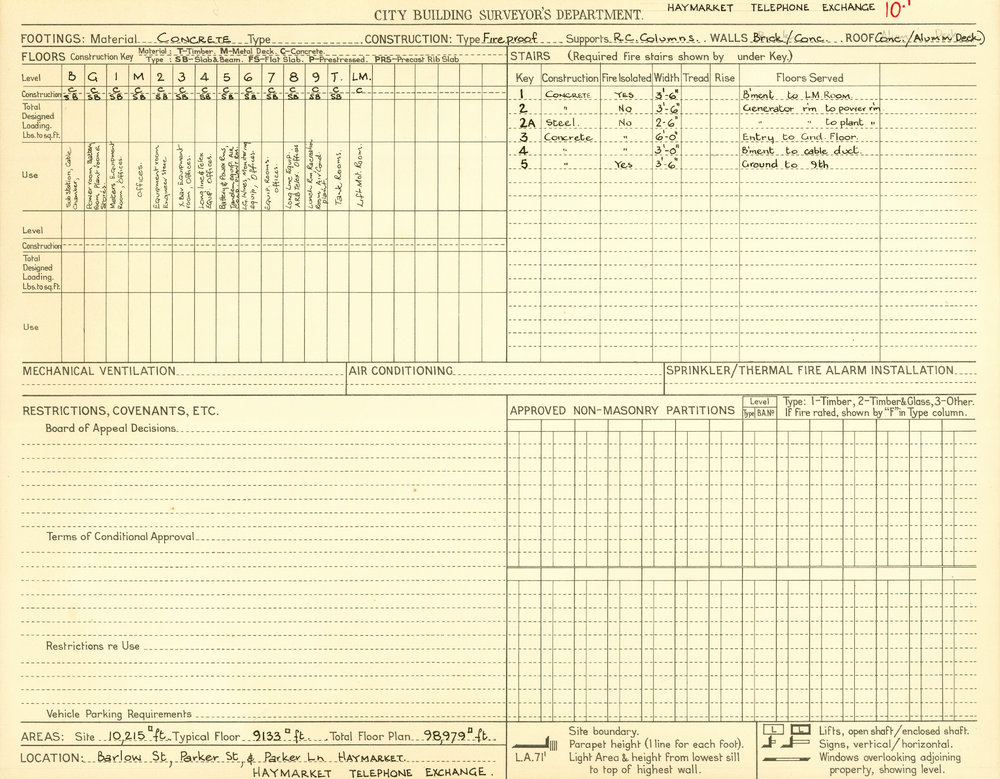 CITY BUILDING SURVEYOR'S DEPARTMENT. HAYMARKET TELEPHONE EXCHANGE 10.1
FOOTINGS: Material CONCRETE Type CONSTRUCTION: Type Fireproof Supports R.C. Columns. WALLS Brick/Conc. ROOF Conc./Alumin Deck)
FLOORS Construction Key Material: T-Timber. M-Metal Deck. C-Concrete.
Type: SB-Slab & Beam. FS-Flat Slab. P-Prestressed. PRS-Precast Rib Slab
Level B G 1 M 2 3 4 5 6 7 8 9 T. LM.
Construction C C C C C C C C C C C C C C
SB SB SB SB SB SB SB SB SB SB SB SB SB
Total
Designed
Loading.
Lbs. to sq. ft.
Use
Substation, Cable Chamber,
Power room, Battery Room, Plant rooms
Meters, Equipment Room, Offices.
Offices.
Equipment room Engineer Store
X Bar Equipment room, Offices.
Long line & Telex Equip. Offices
Equip. Rooms. Offices.
Long Line Equip. ARB Telex. Offices
Lunch Rm, Recreation Room, Air Cond. plant.
Tank Rooms.
Lift Mot. Room.
Level
Construction
Total
Designed
Loading.
Lbs. to sq. ft.
Use
STAIRS (Required Fire stairs shown by under Key.)
Key Construction Fire Isolated Width Tread Rise Floors Served
1 CONCRETE YES 3'-6" B'ment to LM Room.
2 " No 3'-6" Generator r'm to power r'm
2A Steel. No 2'-6" " " to plant "
3 Concrete " 6'-0" Entry to Gnd. Floor.
4 " " 3'-0" B'ment to cable duct.
5 " Yes 3'-6" Ground to 9th.
MECHANICAL VENTILATION AIR CONDITIONING SPRINKLER/THERMAL FIRE ALARM INSTALLATION
RESTRICTIONS, COVENANTS, ETC.
Board of Appeal Decisions
Terms of Conditional Approval
Restrictions re Use
Vehicle Parking Requirements
APPROVED NON-MASONRY PARTITIONS Level
Type B.A.Nº
Type: 1-Timber, 2-Timber & Glass, 3-Other.
If Fire rated, shown by "F" in Type column.
AREAS: Site 10,215 □ft. Typical Floor 9133 □ft. Total Floor Plan 98,979 □ft.
LOCATION: Barlow St, Parker St, & Parker Ln HAYMARKET.
HAYMARKET TELEPHONE EXCHANGE.
Site boundary.
Parapet height (1 line for each foot).
L.A.71' Light Area & height from lowest sill
to top of highest wall.
L L Lifts, open shaft/enclosed shaft.
Signs, vertical/horizontal.
Windows overlooking adjoining
property, showing level.